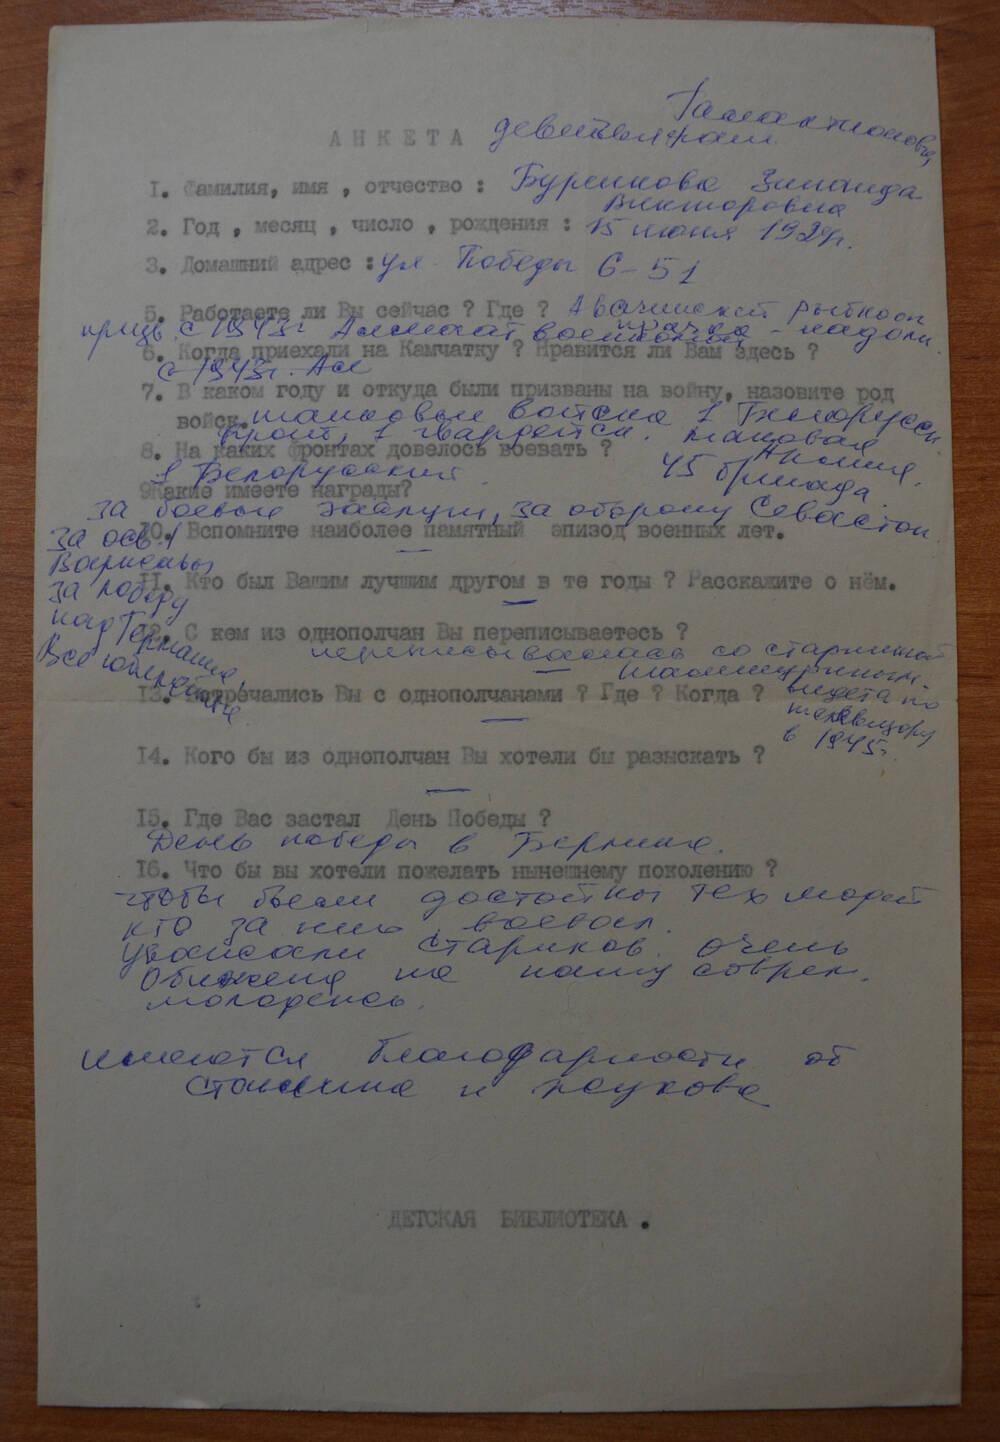 Галактионова
АНКЕТА девичья фам.
1. Фамилия, имя , отчество : Буренкова Зинаида
Викторовна
2. Год , месяц , число , рождения : 15 июня 1924г.
3. Домашний адрес : ул. Победы 6-51
5. Работаете ли Вы сейчас ? Где ? Авачинский рыбкооп
прачка - надомн.
призв. с 1943г военкомат
6. Когда приехали на Камчатку ? Нравится ли Вам здесь ?
с 1943г.
7. В каком году и откуда были призваны на войну, назовите род
войск. танковые войска 1 Белорусск.
фронт, 1 гвардейск. танковая
Армия.
8. На каких фронтах довелось воевать ? 45 бригада
1 Белорусский
9Какие имеете награды?
за боевые заслуги, за оборону Севастоп.
за осв.
Варшавы
за победу
над Германией,
Все юбилейные
10. Вспомните наиболее памятный эпизод военных лет.
—
11. Кто был Вашим лучшим другом в те годы ? Расскажите о нём.
—
12. С кем из однополчан Вы переписываетесь ?
переписывалась со старшиной
13. Встречались Вы с однополчанами ? Где ? Когда ? видела по
телевизору
в 1945г.
—
14. Кого бы из однополчан Вы хотели бы разыскать ?
—
15. Где Вас застал День Победы ?
День победы в Берлине.
16. Что бы вы хотели пожелать нынешнему поколению ?
чтобы были достойны тех людей
кто за них воевал.
уважали стариков. очень
Обижена на нашу соврем.
молодежь.
имеются благодарности от
Сталина и Жукова
ДЕТСКАЯ БИБЛИОТЕКА .